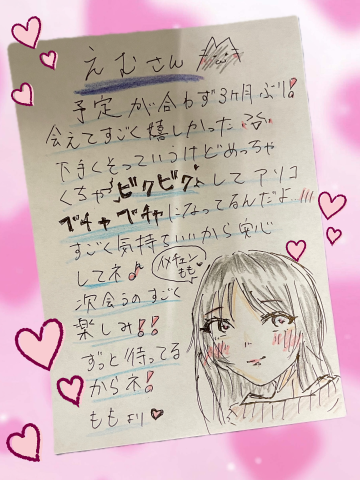 えむさん
予定が合わず3ヶ月ぶり!
会えてすごく嬉しかった
下手くそっていうけどめっちゃ
くちゃビクビクしてアソコ
グチャグチャになってるんだよ…!!!
すごく気持ちいいから安心
してネ♪
イメチェン
もも
次会うのすごく
楽しみ!!
ずっと待ってる
からネ!
ももより♥